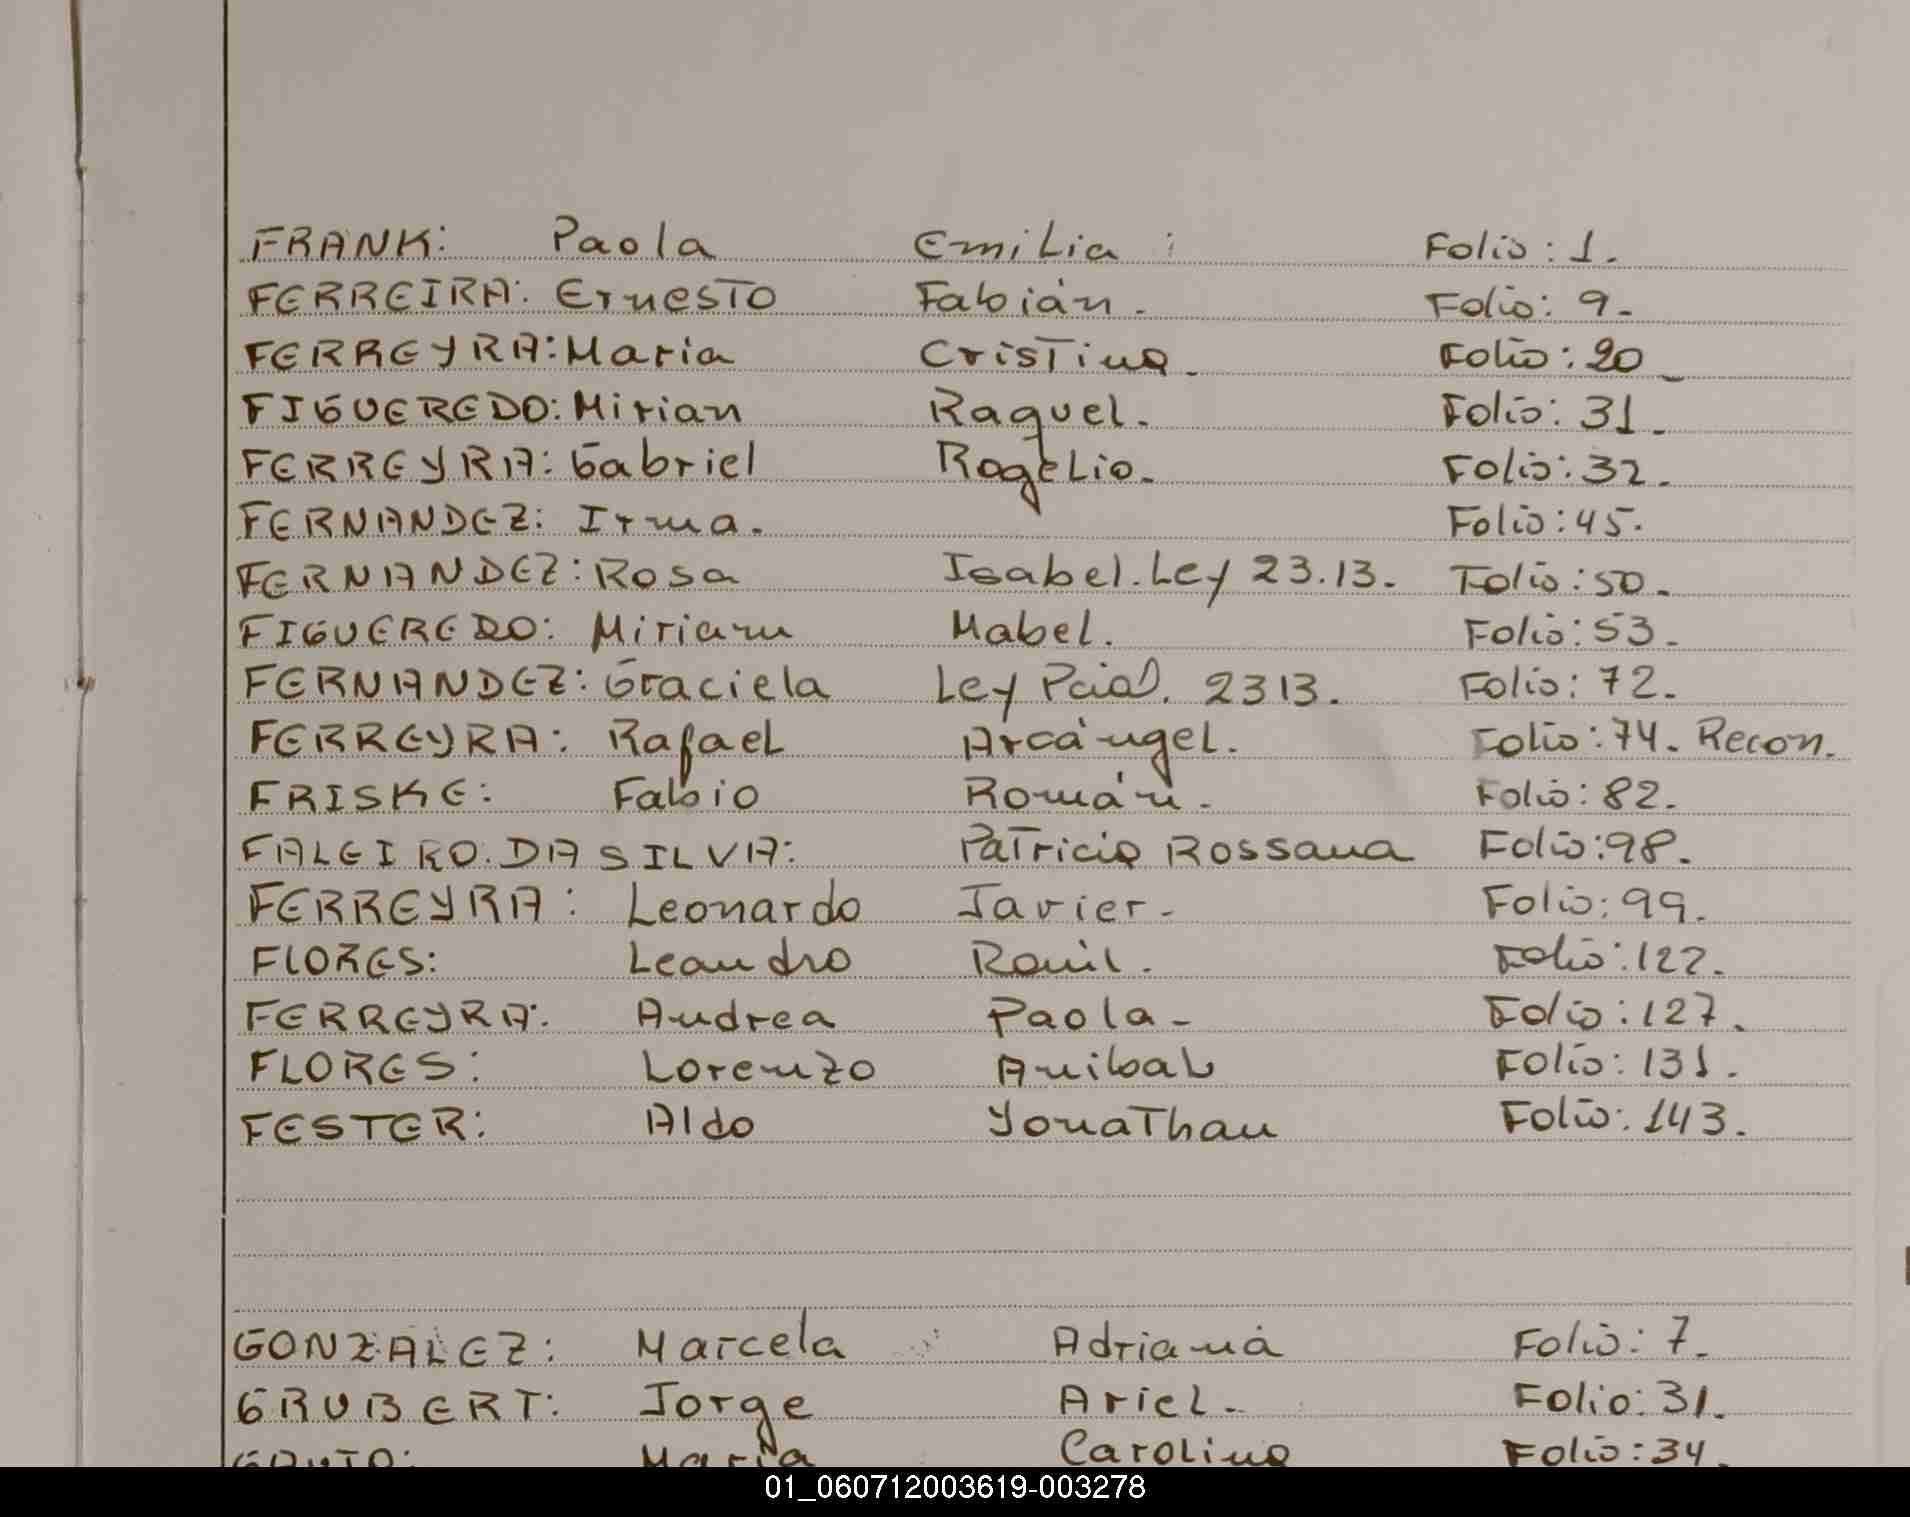 FRANK: Paola Emilia : Folio: 1.
FERREIRA: Ernesto Fabián. Folio: 9.
FERREYRA: Maria Cristina. Folio: 20
FIGUEREDO: Mirian Raquel. Folio: 31.
FERREYRA: Gabriel Rogelio. Folio: 32.
FERNANDEZ: Irma. Folio: 45.
FERNANDEZ: Rosa Isabel. Ley 23.13. Folio: 50.
FIGUEREDO: Miriam Mabel. Folio: 53.
FERNANDEZ: Graciela Ley Pcial. 2313. Folio: 72.
FERREYRA: Rafael Arcángel. Folio: 74. Recon.
FRISKE: Fabio Román. Folio: 82.
FALEIRO.DA SILVA: Patricia Rossana Folio: 98.
FERREYRA: Leonardo Javier. Folio: 99.
FLORES: Leandro Folio: 122.
FERREYRA: Andrea Paola- Folio: 127.
FLORES: Lorenzo Anibal Folio: 131.
FESTER: Aldo Yonathan Folio: 143.
GONZALEZ: Marcela Adriana Folio: 7.
GRUBERT: Jorge Ariel. Folio: 31.
Maria Carolina Folio: 34.
01_060712003619-003278